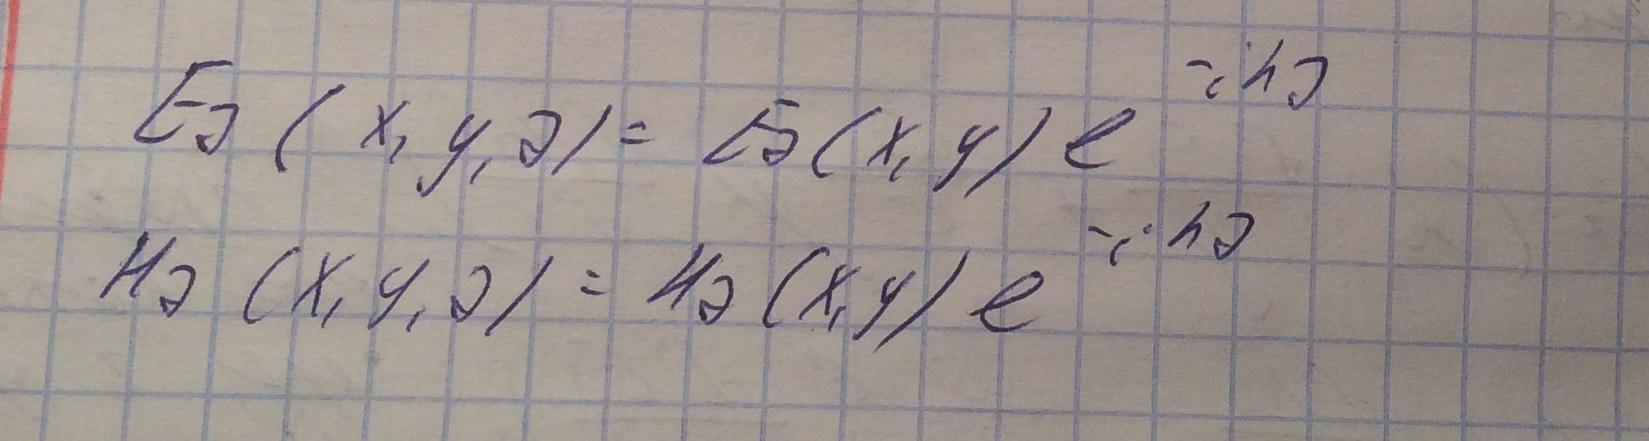 Ez (x, y, z) = Ez (x, y) e^{-ihz}
Hz (x, y, z) = Hz (x, y) e^{-ihz}